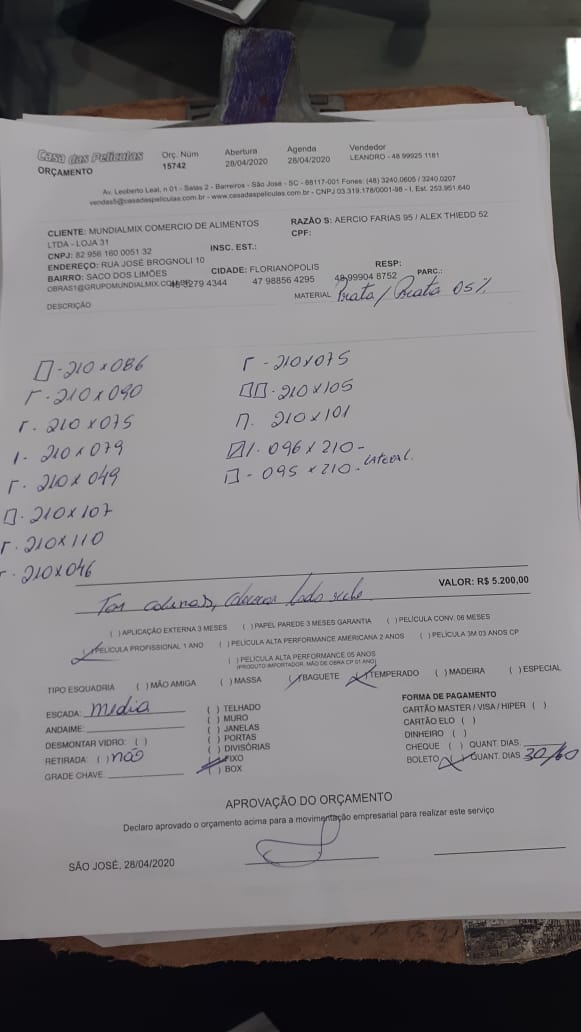 Casa das Películas
ORÇAMENTO
Orç. Núm
15742
Abertura
28/04/2020
Agenda
28/04/2020
Vendedor
LEANDRO - 48 99925 1181
Av. Leoberto Leal, n 01 - Salas 2 - Barreiros - São José - SC - 88117-001 Fones: (48) 3240.0605 / 3240.0207
vendas5@casadaspeliculas.com.br - www.casadaspeliculas.com.br - CNPJ 03.319.178/0001-98 - I. Est. 253.951.640
CLIENTE: MUNDIALMIX COMERCIO DE ALIMENTOS
LTDA - LOJA 31
RAZÃO S: AERCIO FARIAS 95 / ALEX THIEDD 52
CPF:
CNPJ: 82 956 160 0051 32
INSC. EST.:
ENDEREÇO: RUA JOSÉ BROGNOLI 10
RESP:
BAIRRO: SACO DOS LIMÕES
CIDADE: FLORIANÓPOLIS
PARC.:
3279 4344
47 98856 4295
48 99904 8752
DESCRIÇÃO
MATERIAL Prata / Preata 05%
210 x 086
210 x 090
210 x 075
210 x 079
210 x 049
210 x 107
210 x 110
210 x 046
210 x 075
210 x 105
210 x 101
096 x 210 -
095 x 210 - LATERAL.
VALOR: R$ 5.200,00
Tem colunas,
( ) APLICAÇÃO EXTERNA 3 MESES ( ) PAPEL PAREDE 3 MESES GARANTIA ( ) PELÍCULA CONV. 06 MESES
( ) PELÍCULA PROFISSIONAL 1 ANO ( ) PELÍCULA ALTA PERFORMANCE AMERICANA 2 ANOS ( ) PELÍCULA 3M 03 ANOS CP
( ) PELÍCULA ALTA PERFORMANCE 05 ANOS
(PRODUTO IMPORTADOR, MÃO DE OBRA CP 01 ANO)
TIPO ESQUADRIA ( ) MÃO AMIGA ( ) MASSA ( ) BAGUETE ( ) TEMPERADO ( ) MADEIRA ( ) ESPECIAL
ESCADA: media
ANDAIME:
DESMONTAR VIDRO: ( )
RETIRADA: ( ) não
GRADE CHAVE
( ) TELHADO
( ) MURO
( ) JANELAS
( ) PORTAS
( ) DIVISÓRIAS
( ) FIXO
( ) BOX
FORMA DE PAGAMENTO
CARTÃO MASTER / VISA / HIPER ( )
CARTÃO ELO ( )
DINHEIRO ( )
CHEQUE ( ) QUANT. DIAS
BOLETO ( ) QUANT. DIAS 30/60
APROVAÇÃO DO ORÇAMENTO
Declaro aprovado o orçamento acima para a movimentação empresarial para realizar este serviço
SÃO JOSÉ, 28/04/2020